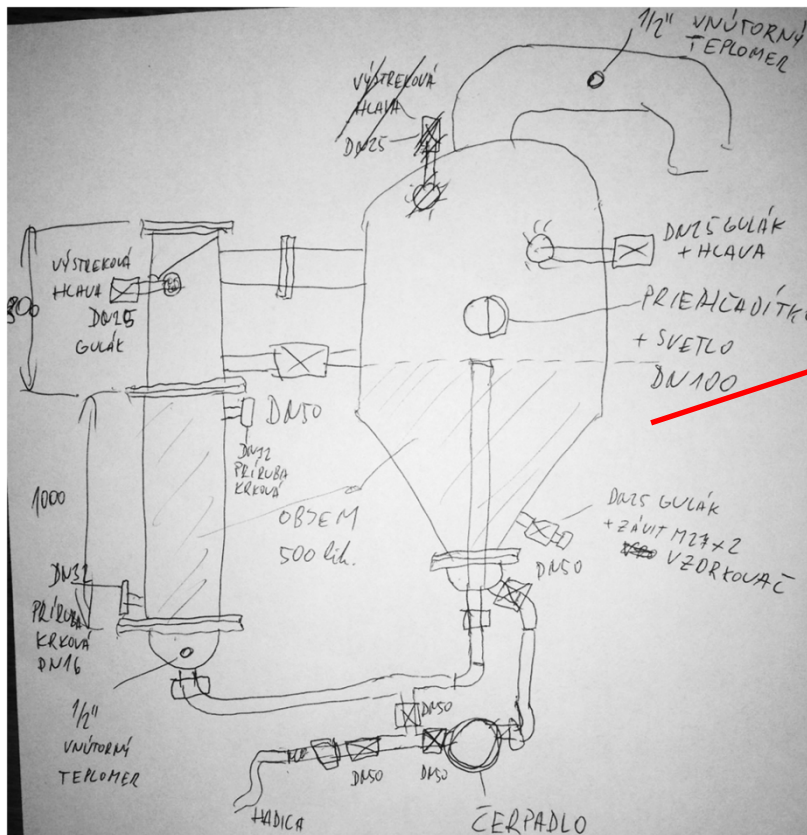 1/2" VNÚTORNÝ
TEPLOMER
VÝSTREKOVÁ
HLAVA
DN25
DN25 GULÁK
+ HLAVA
VÝSTREKOVÁ
HLAVA
DN25
GULÁK
800
+ SVETLO
DN100
DN50
DN32
PRÍRUBA
KRKOVÁ
1000
OBJEM
500 lit.
DN25 GULÁK
+ ZÁVIT M27×2
VZORKOVAČ
DN50
DN32
PRÍRUBA
KRKOVÁ
DN16
1/2"
VNÚTORNÝ
TEPLOMER
DN50
DN50
DN50
HADICA
ČERPADLO